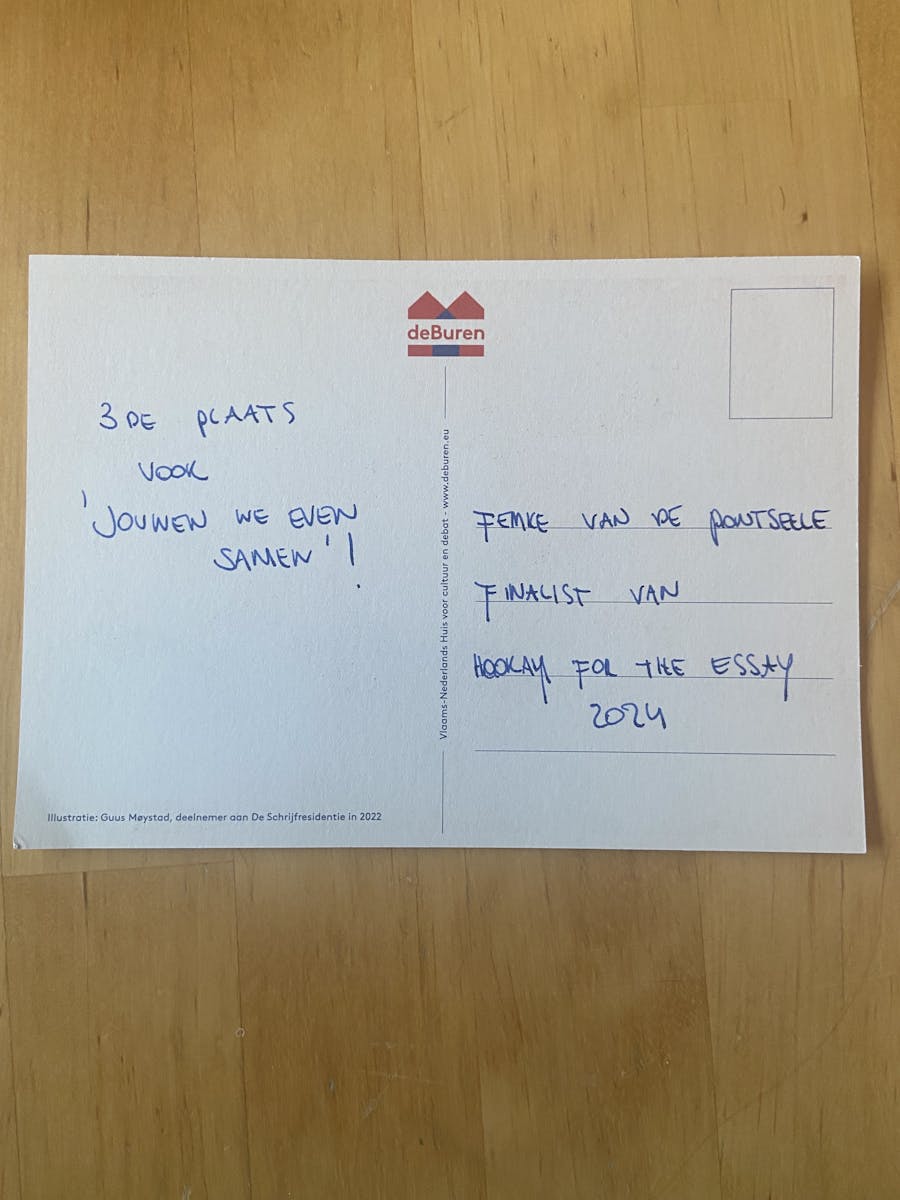 deBuren
3DE PLAATS
VOOR
'JOUWEN WE EVEN
SAMEN'!
FEMKE VAN DE PONTSEELE
FINALIST VAN
HOORAY FOR THE ESSAY
2024
Vlaams-Nederlands Huis voor cultuur en debat - www.deburen.eu
Illustratie: Guus Møystad, deelnemer aan De Schrijfresidentie in 2022